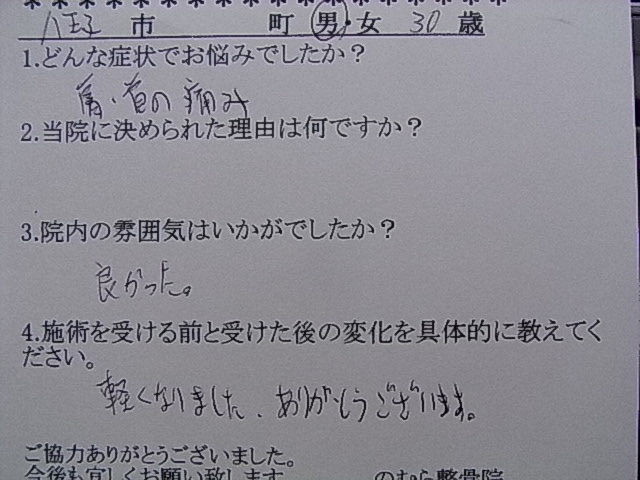 * * * * * * * * * * * * * * * * * *
八王子 市 町 男・女 30 歳
1.どんな症状でお悩みでしたか？
肩・首の痛み
2.当院に決められた理由は何ですか？
3.院内の雰囲気はいかがでしたか？
良かった。
4.施術を受ける前と受けた後の変化を具体的に教えてく
ださい。
軽くなりました、ありがとうございます。
ご協力ありがとうございました。
今後も宜しくお願い致します のむら整骨院